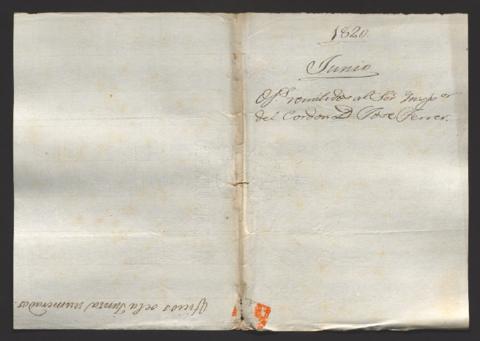 1820
Junio
Ofs. remitidos al Sor. Inspor.
del Cordon D. Jose Ferrer.
Oficios de la Junta numerados